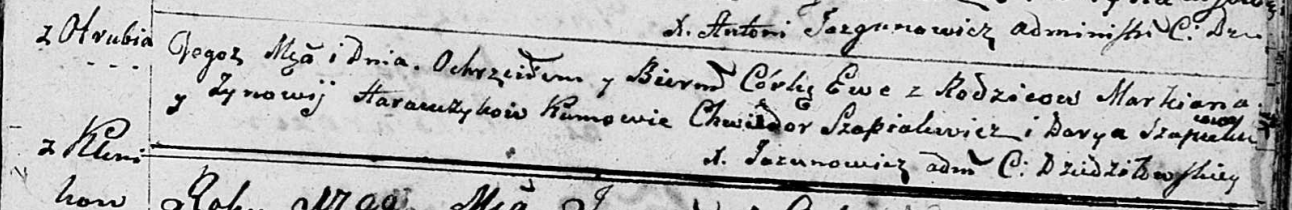 X. Antoni Jazgunowicz administr C: Dzie
z Otrubia
Tegoż Mca i Dnia. Ochrzciłem y Bierm Córkę Ewe z Rodzicow Markiana
y Zynowij Harawzykow Kumowie Chwiedor Szapialewicz i Darya Szapielewiczowa
X. Jazunowicz adm C: Dziedziłowskiey
z Kleni
kow
Roku Mca